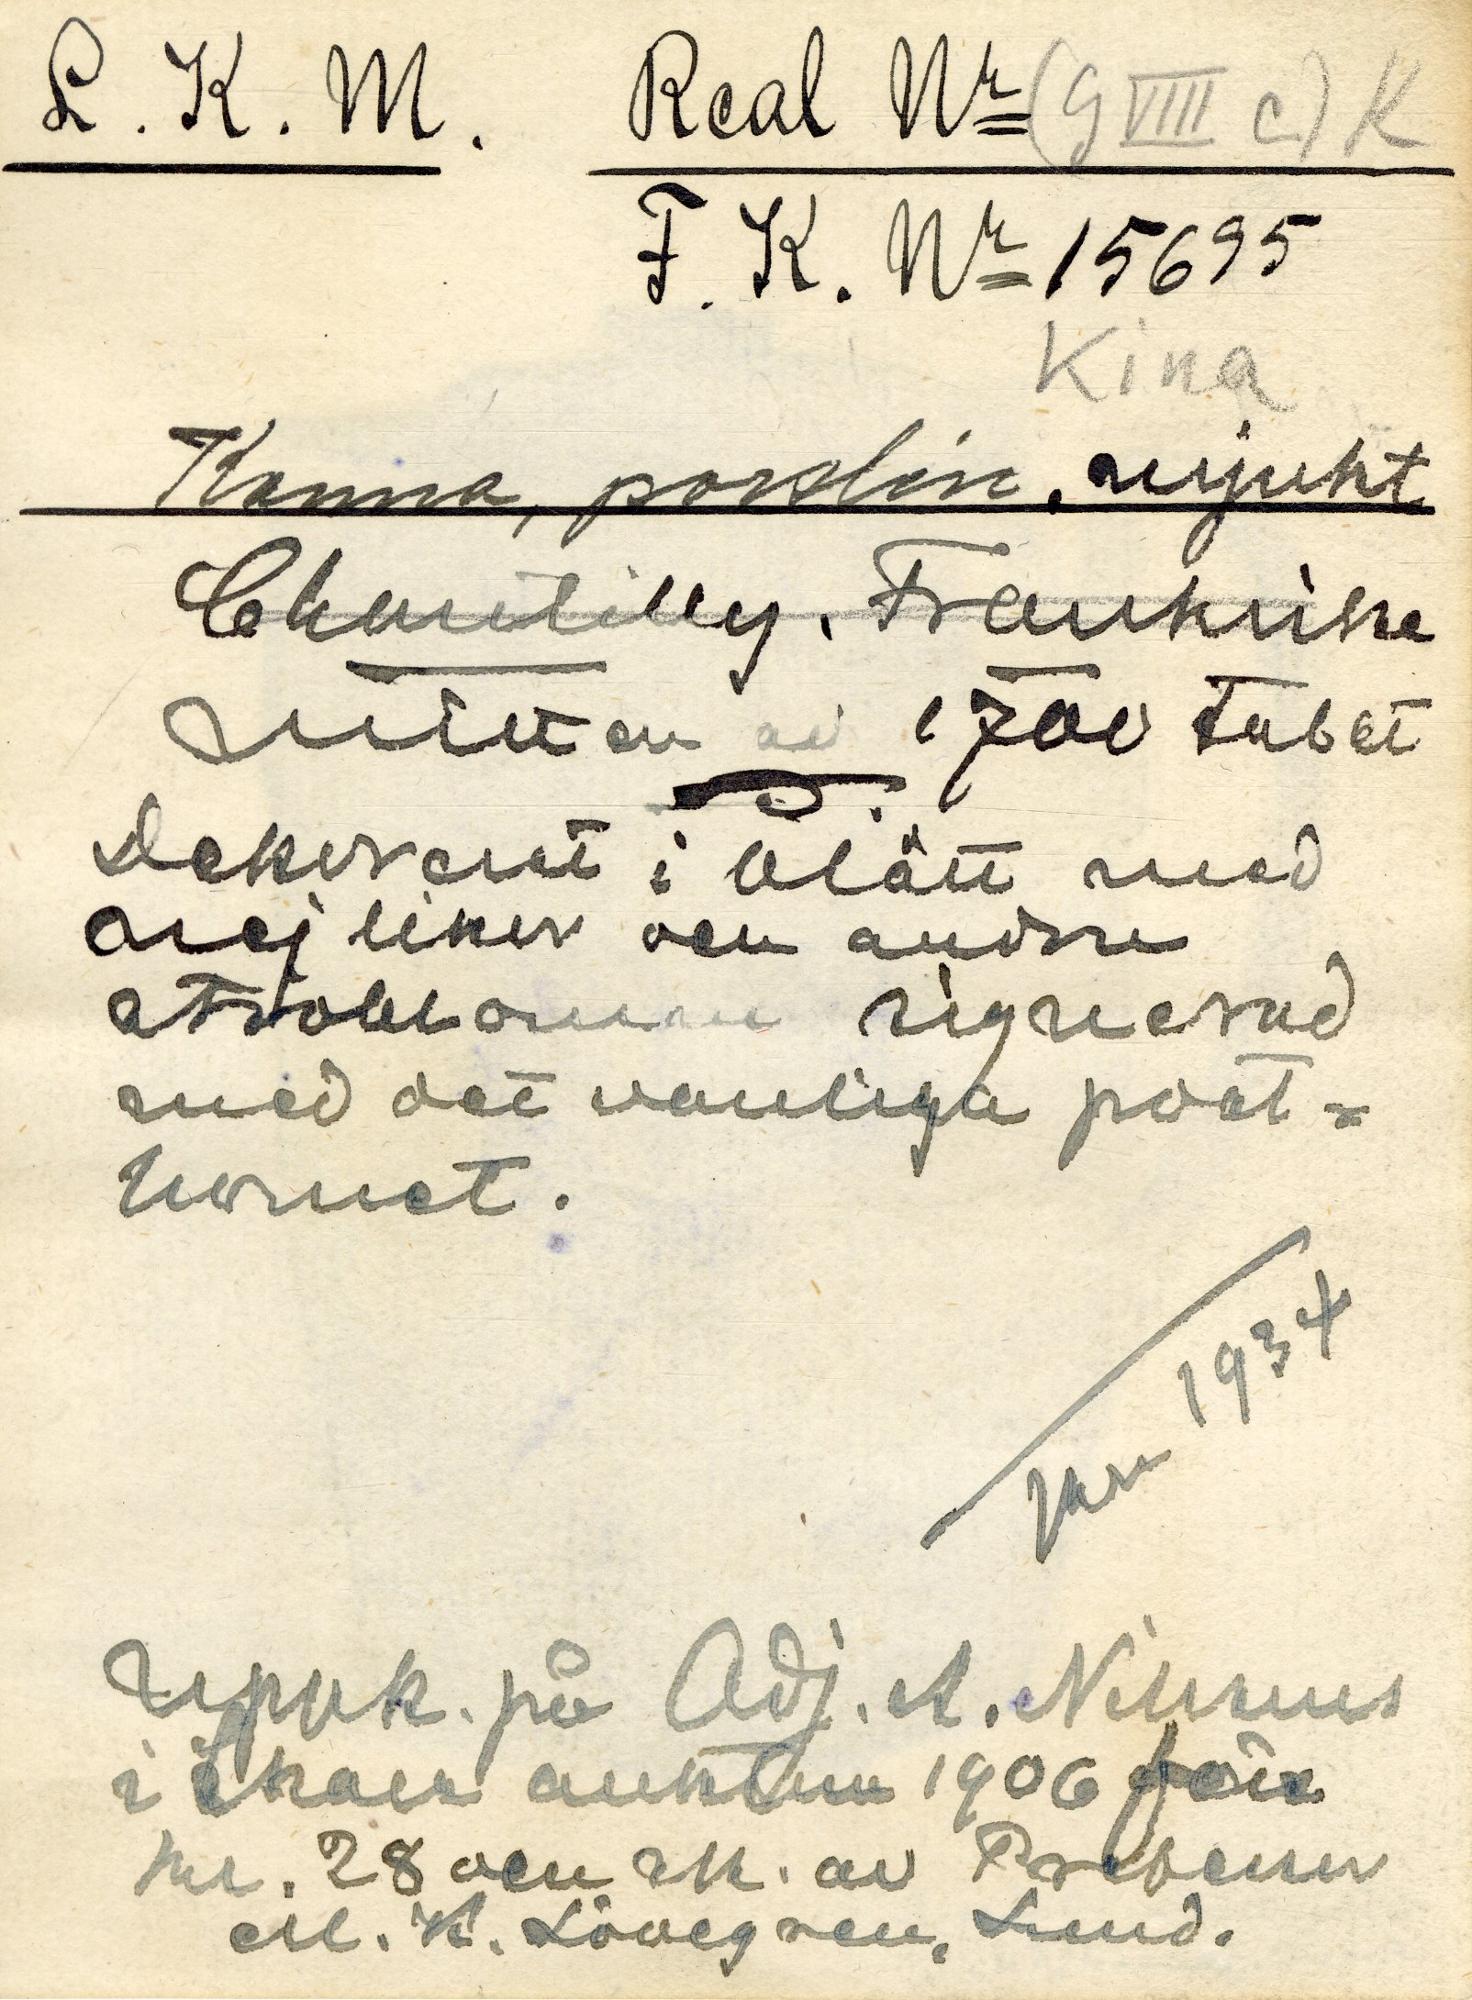 L. K. M. Real Nr (G VIII c) K
F. K. Nr 15695
Kina
Kanna, porslin, mjukt
Chantilly, Frankrike
mitten av 1700 talet
Dekorerat i blått med
nejlikor och andra
ströblommor signerad
med det vanliga post-
hornet.
1934
Inropk. på Adj. A. Nilssons
i Skara auktion 1906 för
kr. 28 och sk. av Professor
M. K. Lövegren, Lund.